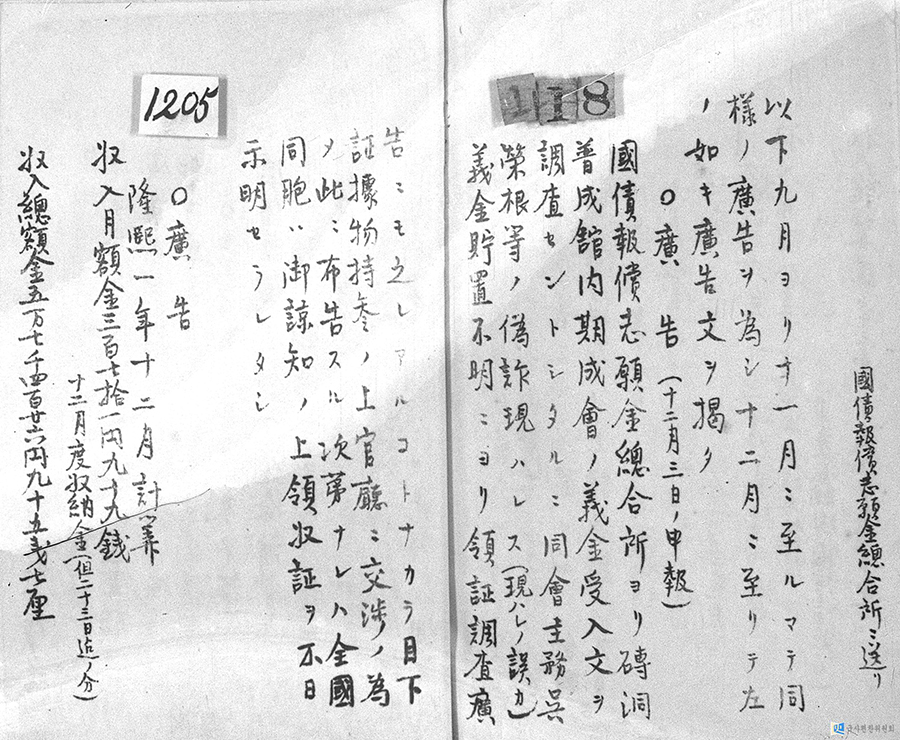 國債報償志願金總合所ニ送リ
118
以下九月ヨリ十一月ニ至ルマテ同
樣ノ廣告ヲ為シ十二月ニ至リテ左
ノ如キ廣告文ヲ揭ク
○廣告(十二月三日ノ申報)
國債報償志願金總合所ヨリ磚洞
普成館内期成會ノ義金受入文ヲ
調査セントシタルニ同會主務吳
榮根等ノ偽詐現ハレス(現ハレノ誤カ)
義金貯置不明ニヨリ領証調査廣
1205
告ニモ之レアルコトナカラ目下
証據物持参ノ上官廳ニ交渉ノ為
メ此ニ布告スル次第ナレハ全國
同胞ハ御諒知ノ上領収証ヲ不日
示明セラレタシ
○廣告
隆熙一年十二月計算
収入月額金三百七拾一円九十九錢
十二月度収納金(但二十三日迄ノ分)
収入總額金五万七千四百廿六円九十五戔七厘
국사편찬위원회